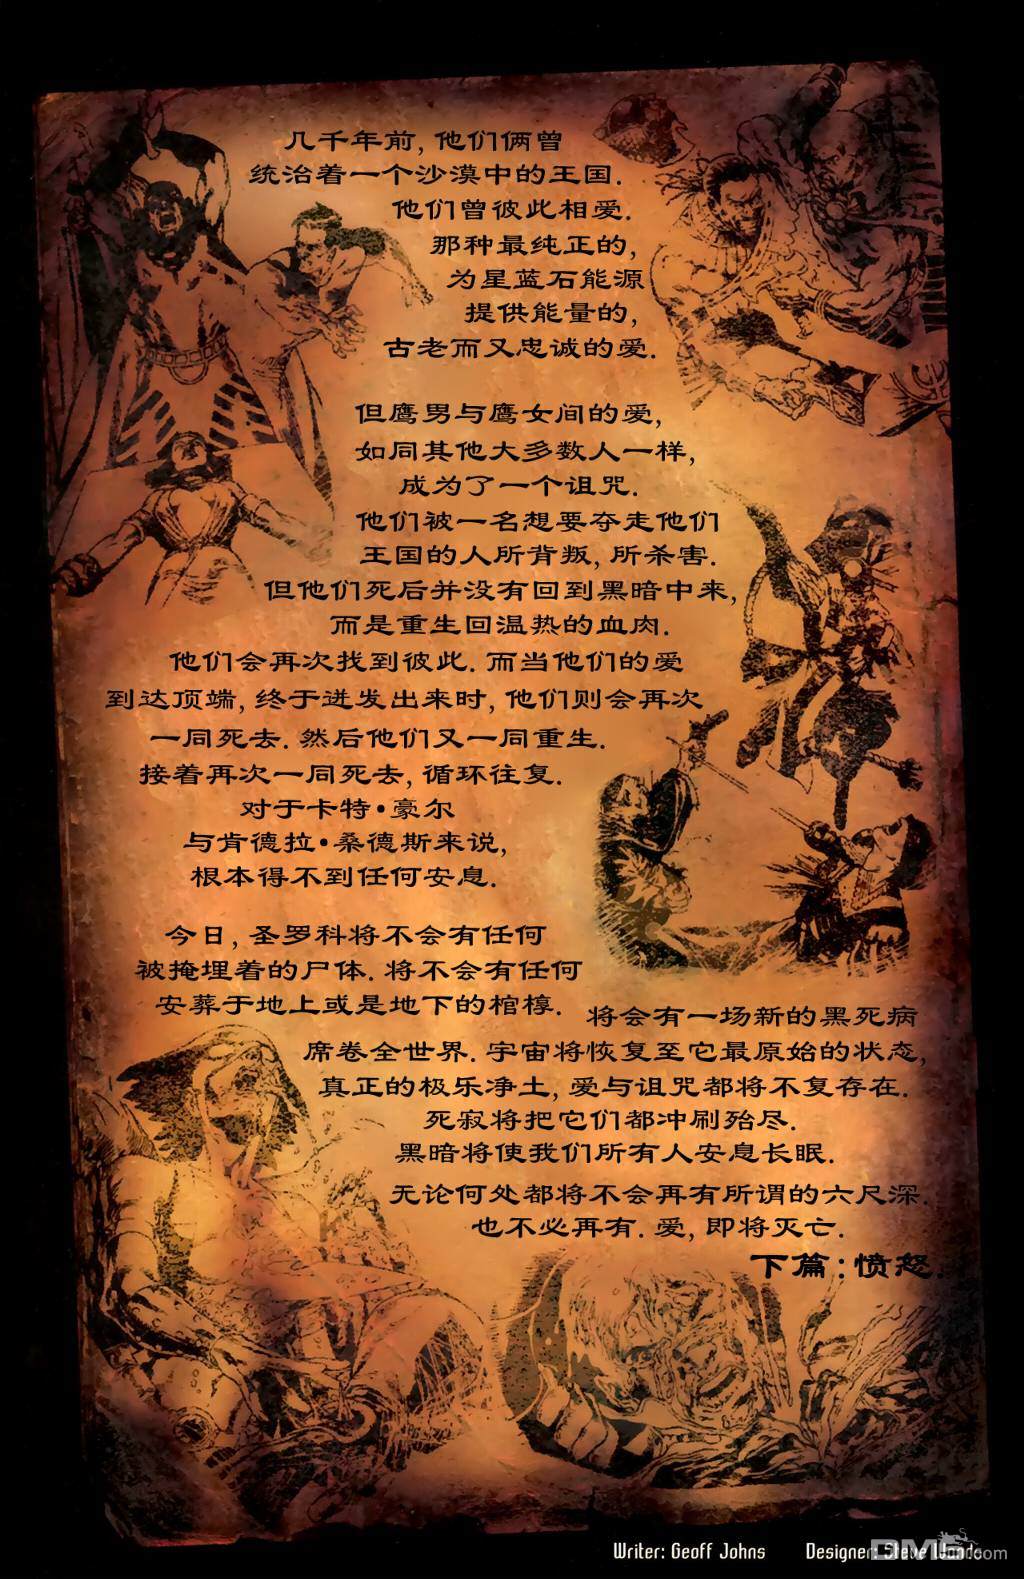 几千年前，他们俩曾
统治着一个沙漠中的王国.
他们曾彼此相爱.
那种最纯正的，
为星蓝石能源
提供能量的，
古老而又忠诚的爱.
但鹰男与鹰女间的爱，
如同其他大多数人一样，
成为了一个诅咒.
他们被一名想要夺走他们
王国的人所背叛，所杀害.
但他们死后并没有回到黑暗中来，
而是重生回温热的血肉.
他们会再次找到彼此. 而当他们的爱
到达顶端，终于迸发出来时，他们则会再次
一同死去. 然后他们又一同重生.
接着再次一同死去，循环往复.
对于卡特•豪尔
与肯德拉•桑德斯来说，
根本得不到任何安息.
今日，圣罗科将不会有任何
被掩埋着的尸体. 将不会有任何
安葬于地上或是地下的棺椁.
将会有一场新的黑死病
席卷全世界. 宇宙将恢复至它最原始的状态，
真正的极乐净土，爱与诅咒都将不复存在.
死寂将把它们都冲刷殆尽.
黑暗将使我们所有人安息长眠.
无论何处都将不会再有所谓的六尺深.
也不必再有. 爱，即将灭亡.
下篇：愤怒.
Writer: Geoff Johns Designer: Steve Wands